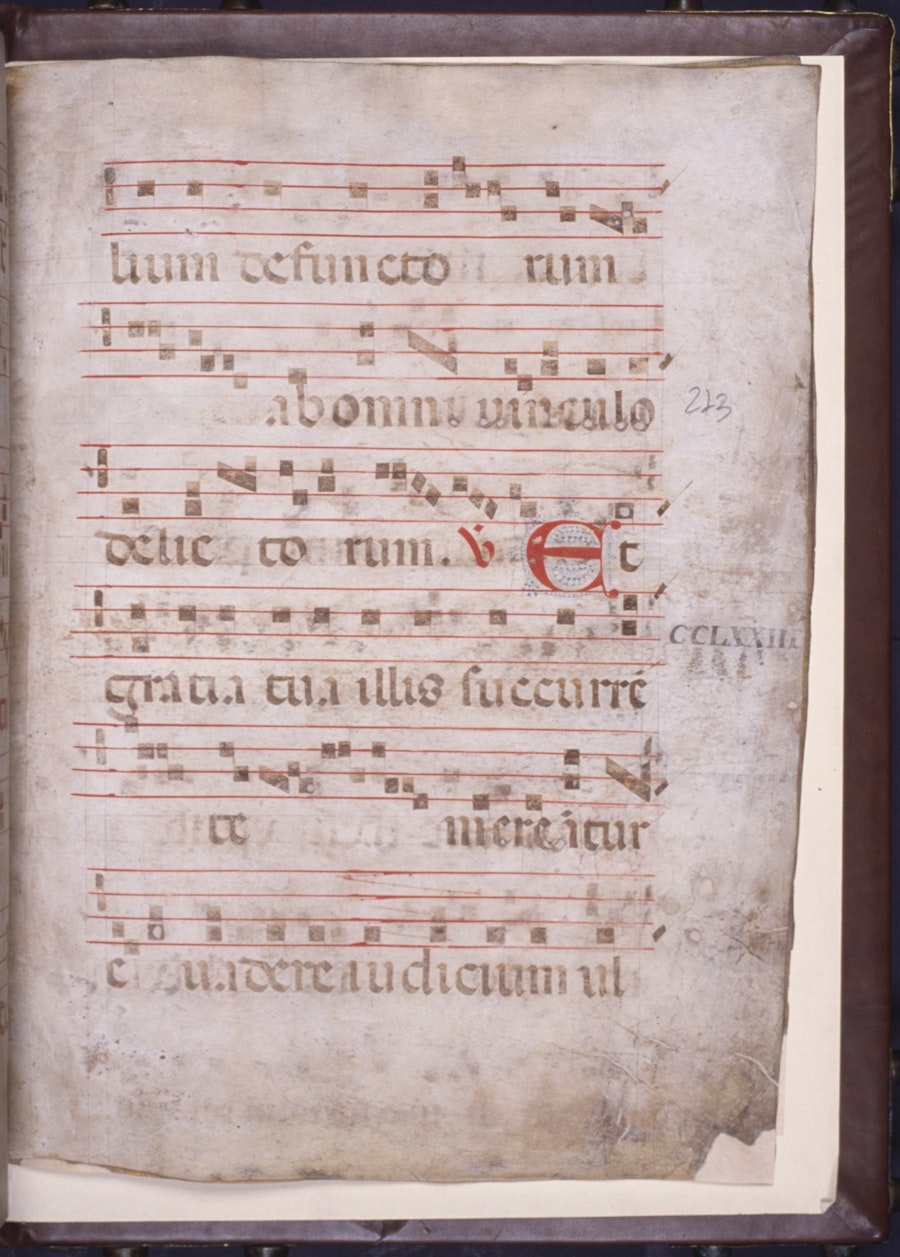 lium defuncto rum
ab omni uinculo
223
delic to rum. V Et
CCLXXIII
gratia tua illis succurre
te mereātur
e uadere iudicium ul